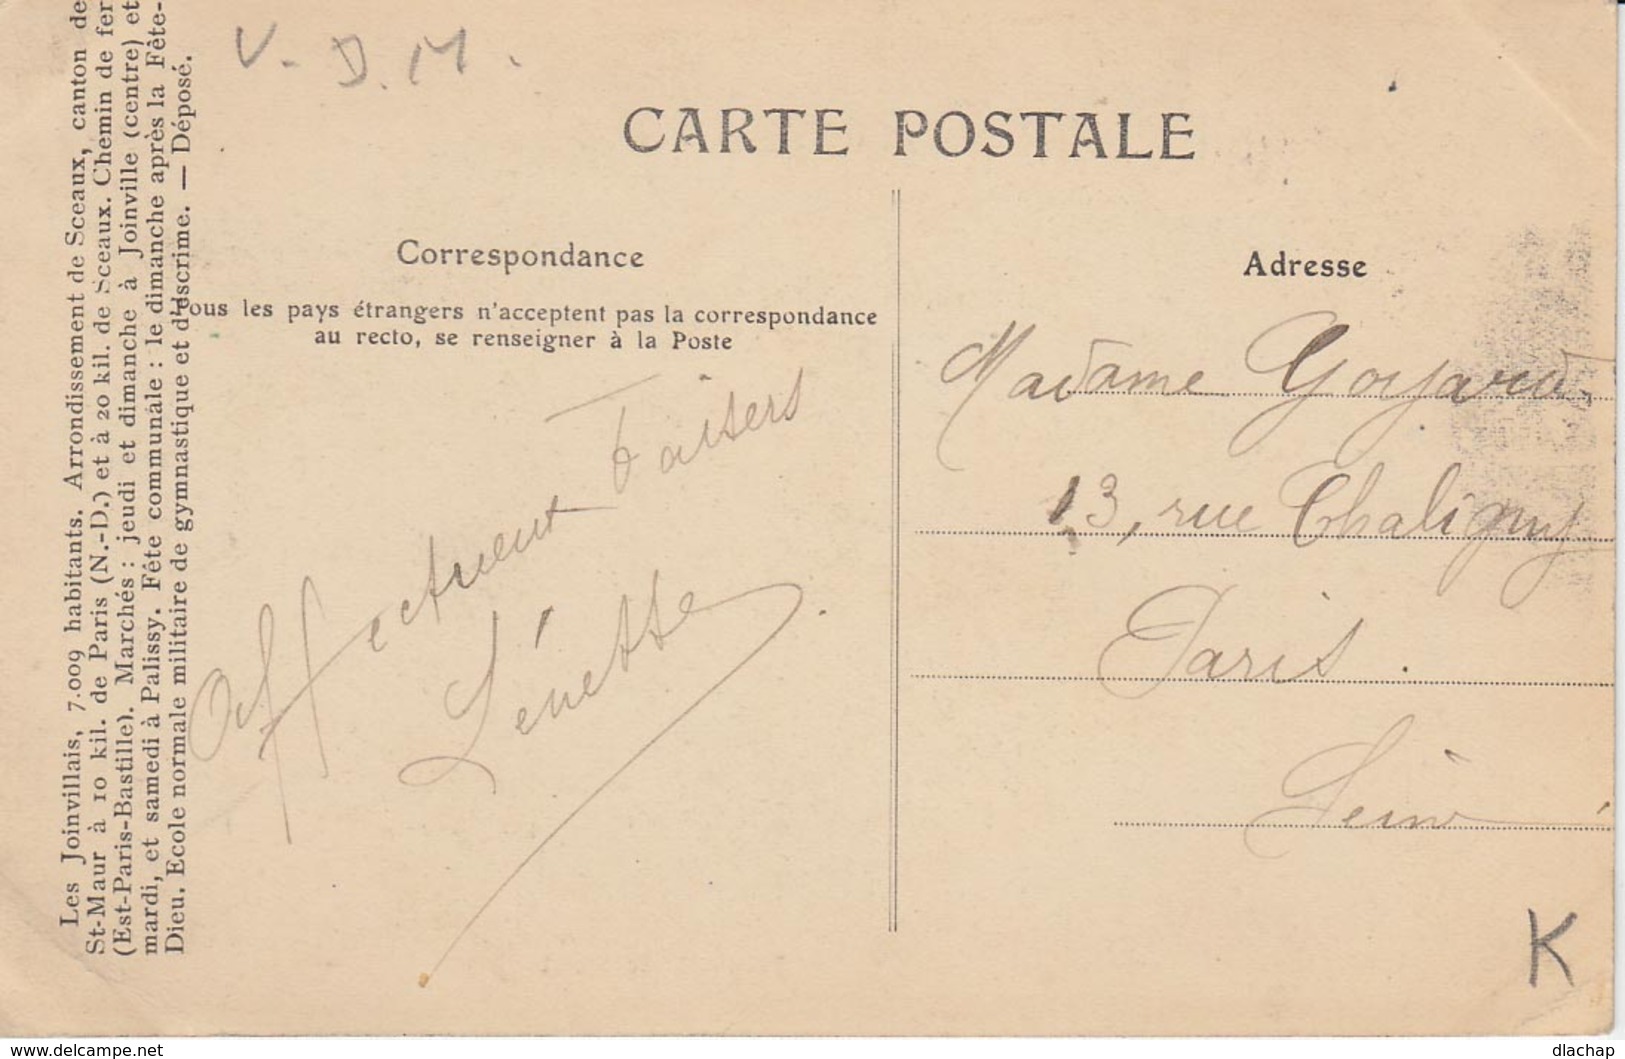 Les Joinvillais, 7.009 habitants. Arrondissement de Sceaux, canton de
St-Maur à 10 kil. de Paris (N.-D.) et à 20 kil. de Sceaux. Chemin de fer
(Est-Paris-Bastille). Marchés : jeudi et dimanche à Joinville (centre) et
mardi, et samedi à Palissy. Fête communale : le dimanche après la Fête-
Dieu. Ecole normale militaire de gymnastique et d'escrime. — Déposé.
V. D. M.
CARTE POSTALE
Correspondance
Tous les pays étrangers n'acceptent pas la correspondance
au recto, se renseigner à la Poste
Affectueux baisers
Lénette
Adresse
Madame Goyard
13, rue Chaligny
Paris.
Seine
K
www.delcampe.net
dlachap